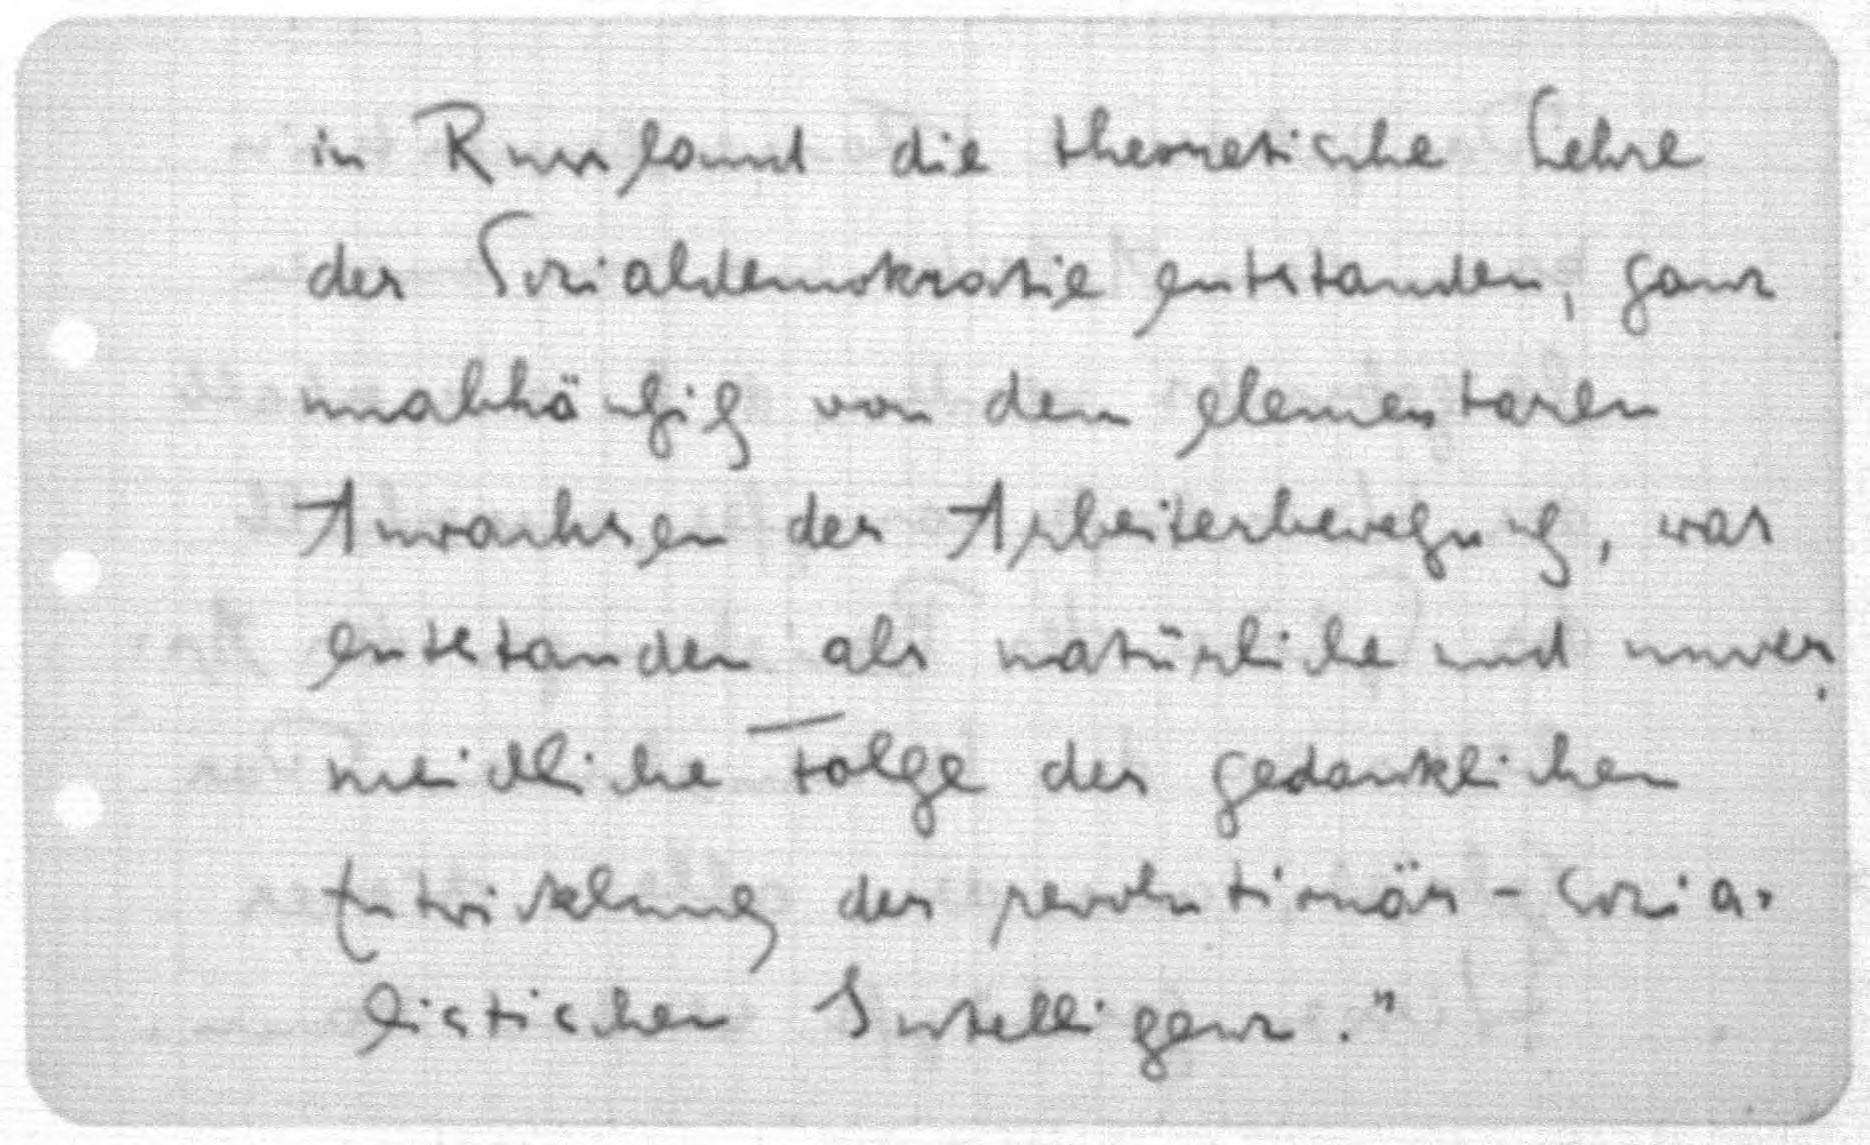 in Russland die theoretische Lehre
der Sozialdemokratie entstanden, ganz
unabhängig von dem elementaren
Anwachsen der Arbeiterbewegung, war
entstanden als natürliche und unver-
meidliche Folge der gedanklichen
Entwicklung der revolutionär-sozia-
listischen Intelligenz."